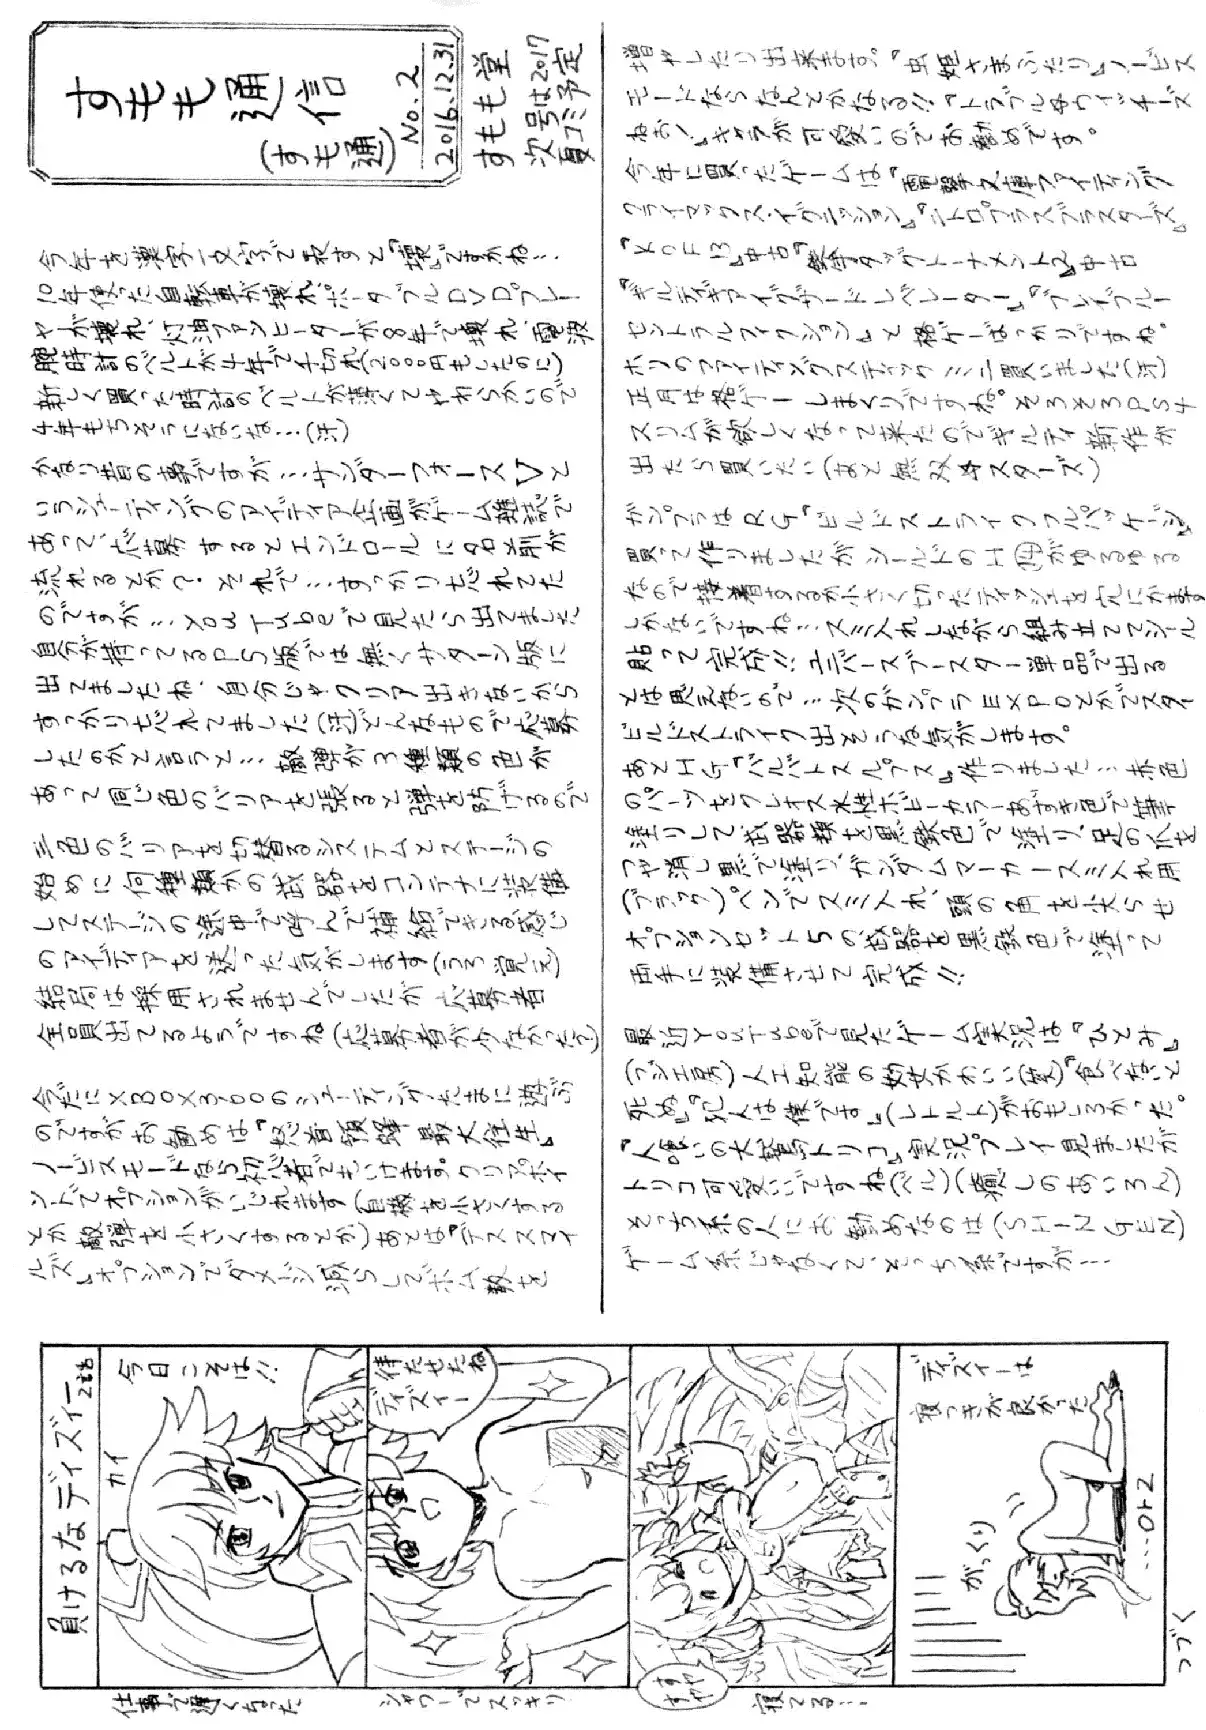 すもも通信
(すも通)
No.2
2016.12.31
すもも堂
次号は2017
夏コミ予定
今年を漢字一文字で表すと『壊』ですかね…
10年使った自転車が壊れ、ポータブルDVDプレー
ヤが壊れ、灯油ファンヒーターが8年で壊れ、電波
腕時計のベルトが4年で千切れ(2000円もしたのに)
新しく買った時計のベルトが薄くてやわらかいので
4年もちそうにないな…(汗)
かなり昔の事ですが…サンダーフォースVと
いうシューティングのアイディア企画がゲーム雑誌で
あって、応募するとエンドロールに名前が
流れるとか?それで…すっかり忘れてた
のですが…YouTubeで見たら出てました
自分が持ってるPS版では無くサターン版に
出てましたね、自分じゃクリア出きないから
すっかり忘れてました(汗)どんなもので応募
したのかと言うと…敵弾が3種類の色が
あって同じ色のバリアを張ると弾を防げるので
三色のバリアを切替るシステムとステージの
始めに何種類かの武器をコンテナに装備
してステージの途中で呼んで補給できる感じ
のアイディアを送った気がします(うろ覚え)
結局は採用されませんでしたが応募者
全員出てるようですね(応募者が少なかった?)
今だにXBOX360のシューティングたまに遊ぶ
のですがお勧めは『怒首領蜂最大往生』
ノービスモードなら初心者でもいけます。クリアポイ
ントでオプションがいじれます(自機を小さくする
とか敵弾を小さくするとか)あとは『デススマイ
ルズ』オプションでダメージ減らしてボム数を
増やしたり出来ます。『虫姫さまふたり』ノービス
モードならなんとかなる!!『トラブル☆ウィッチーズ
ねお!』キャラが可愛いのでお勧めです。
今年に買ったゲームは『電撃文庫ファイティング
クライマックスイグニッション』『ニトロプラスブラスターズ』
『KOF13』中古『鉄拳タッグトーナメント2』中古
『ギルティギアイグザードレベレーター』『ブレイブルー
セントラルフィクション』と格ゲーばっかりですね。
ホリのファイティングスティックミニ買いました(汗)
正月は格ゲーしまくりですね。そろそろPS4
スリムが欲しくなって来たのでギルティ新作が
出たら買いたい(あと無双☆スターズ)
ガンプラはRG『ビルドストライクフルパッケージ』
買って作りましたがシールドのH⑭がゆるゆる
なので接着するか小さく切ったティッシュを穴にかます
しかないですね…スミ入れしながら組み立ててシール
貼って完成!!ユニバースブースター単品で出る
とは思えないので…次のガンプラEXPOとかでスター
ビルドストライク出そうな気がします。
あとHG『バルバトスルプス』作りました…赤色
のパーツをクレオス水性ホビーカラーあずき色で筆
塗りして武器類を黒鉄色で塗り、足の爪を
つや消し黒で塗り、ガンダムマーカースミ入れ用
(ブラック)ペンでスミ入れ、頭の角を尖らせ
オプションセット5の武器を黒鉄色で塗って
両手に装備させて完成!!
最近YouTubeで見たゲーム実況は『ひとみ』
(フジ工房)人工知能の幼女かわいい(笑)『食べないと
死ぬ』『犯人は僕です』(レトルト)がおもしろかった。
『人喰いの大鷲トリコ』実況プレイ見ましたが
トリコ可愛いですね(ベル)(癒しのあいろん)
そっち系の人にお勧めなのは(SHIN GEN)
ゲーム系じゃなくて、そっち系ですが…
負けるなディズィー
2話
今日こそは!!
カイ
仕事で遅くなった
待たせたね
ディズィー
シャワーでスッキリ
すやすや
寝てる…
ディズィーは
寝つきが良かった
がっくり
…OTZ
つづく